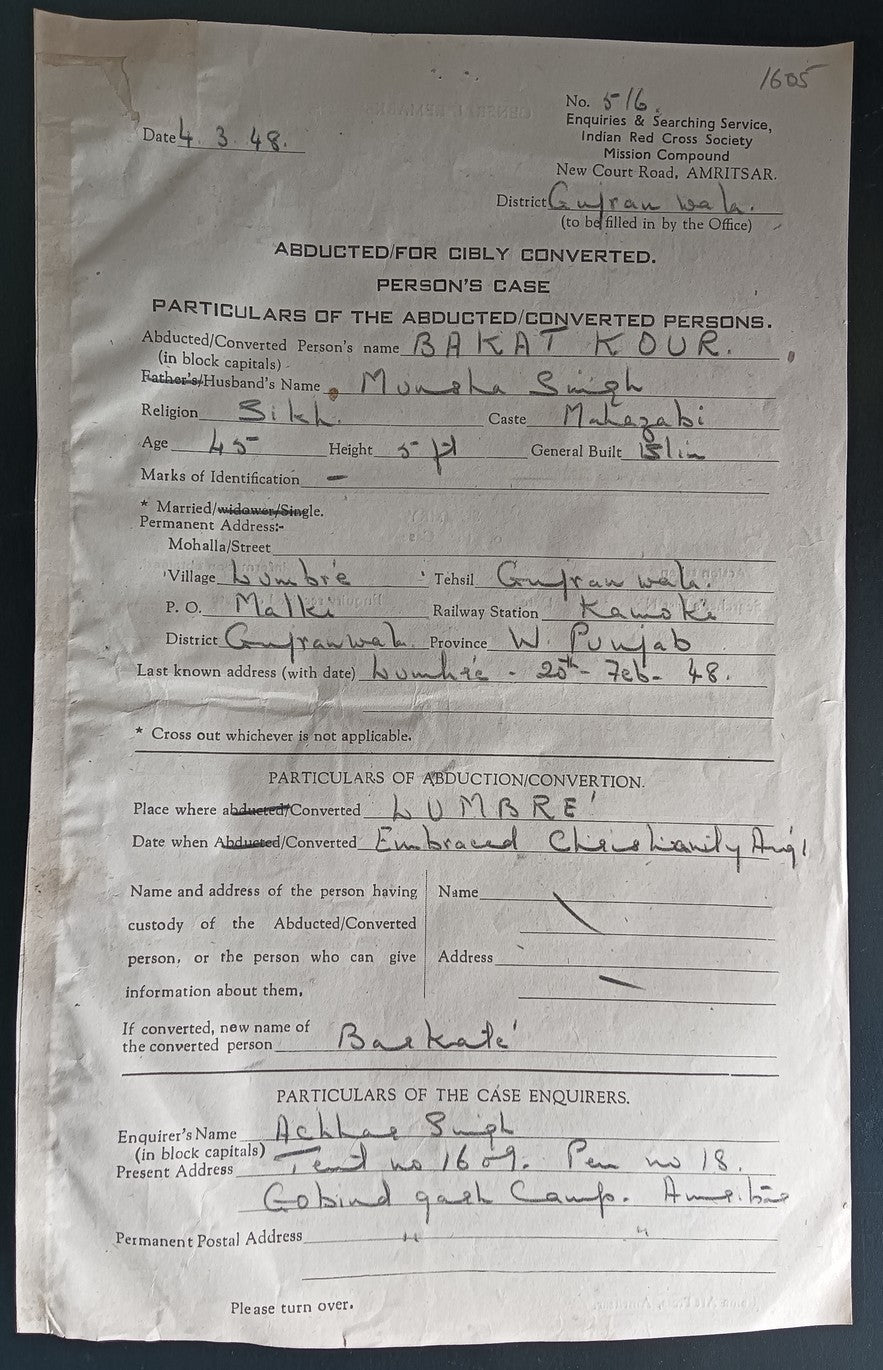 1605
No. 516.
Enquiries & Searching Service,
Indian Red Cross Society
Mission Compound
New Court Road, AMRITSAR.
Date 4. 3. 48.
District Gujranwala.
(to be filled in by the Office)
ABDUCTED/FOR CIBLY CONVERTED.
PERSON'S CASE
PARTICULARS OF THE ABDUCTED/CONVERTED PERSONS.
Abducted/Converted Person's name BAKAT KOUR.
(in block capitals)
Father's/Husband's Name Munsha Singh
Religion Sikh. Caste Mahazabi
Age 45 Height 5 ft General Built Slim
Marks of Identification —
* Married/widower/Single.
Permanent Address:-
Mohalla/Street
Village Lumbre Tehsil Gujranwala.
P. O. Malki Railway Station Kamoki
District Gujranwala. Province W. Punjab
Last known address (with date) Lumbre - 20th - Feb - 48.
* Cross out whichever is not applicable.
PARTICULARS OF ABDUCTION/CONVERTION.
Place where abducted/Converted LUMBRE'
Date when Abducted/Converted Embraced Christianity Aug
Name and address of the person having Name
custody of the Abducted/Converted
person, or the person who can give Address
information about them,
If converted, new name of
the converted person Barkate'
PARTICULARS OF THE CASE ENQUIRERS.
Enquirer's Name Achhar Singh
(in block capitals)
Present Address Tent no 1609. Pen no 18.
Gobind garh Camp. Amritsar
Permanent Postal Address " "
Please turn over.